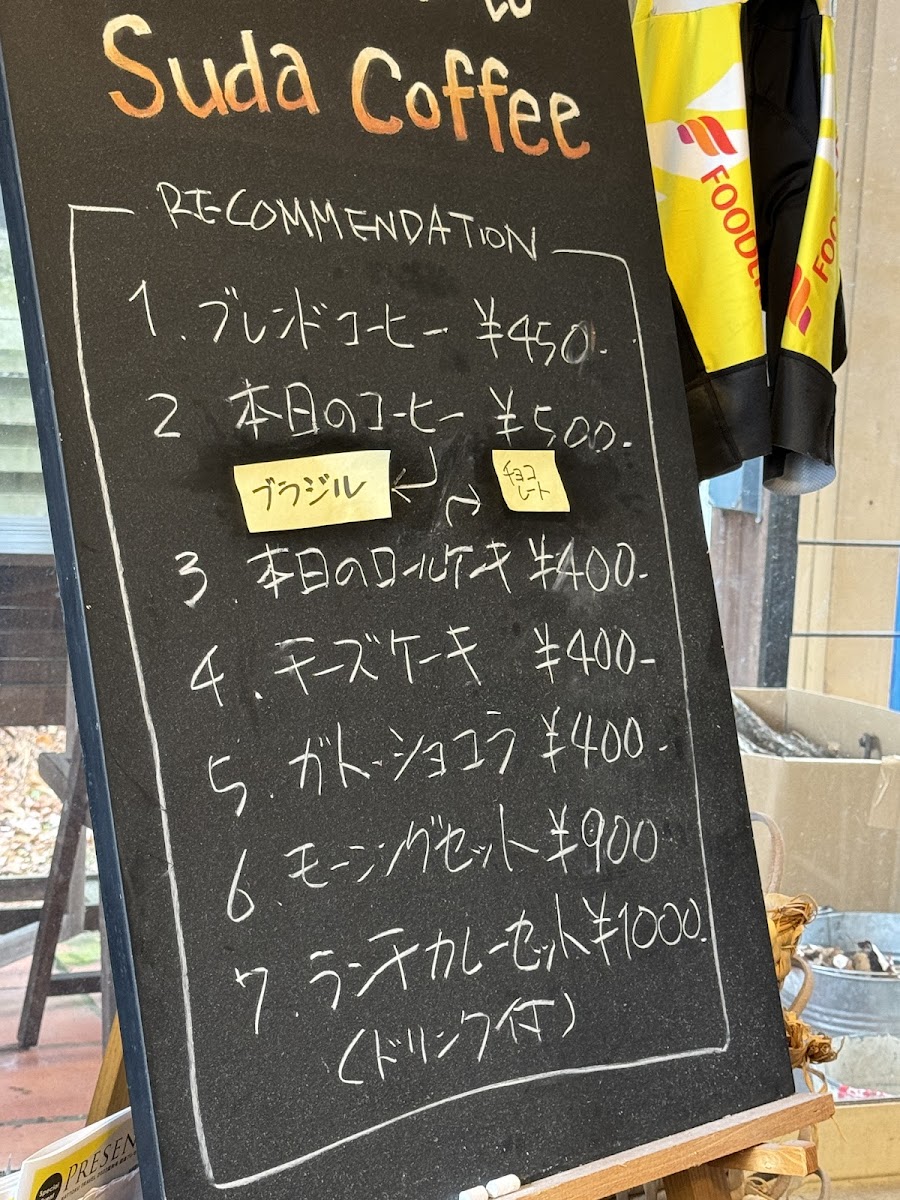 Suda Coffee
RECOMMENDATION
1. ブレンドコーヒー ¥450-
2 本日のコーヒー ¥500-
ブラジル
チョコ
レート
3 本日のロールケーキ ¥400-
4. チーズケーキ ¥400-
5. ガトーショコラ ¥400-
6. モーニングセット ¥900
7. ランチカレーセット ¥1000.
(ドリンク付)
PRESEN
Special